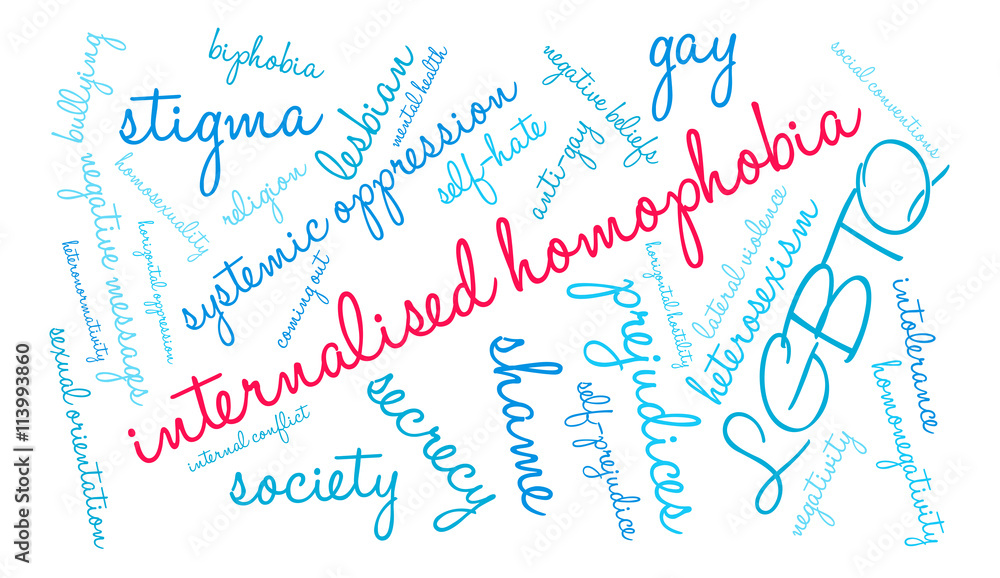 bullying
biphobia
stigma
lesbian
mental health
negative beliefs
gay
social conventions
negative messages
homosexuality
religion
systemic oppression
self-hate
anti-gay
internalised homophobia
LGBTQ
heteronormativity
horizontal oppression
coming out
horizontal hostility
lateral violence
heterosexism
prejudices
intolerance
sexual orientation
internal conflict
society
secrecy
shame
self-prejudice
negativity
homonegativity
Adobe Stock | #113993860
Adobe Stock